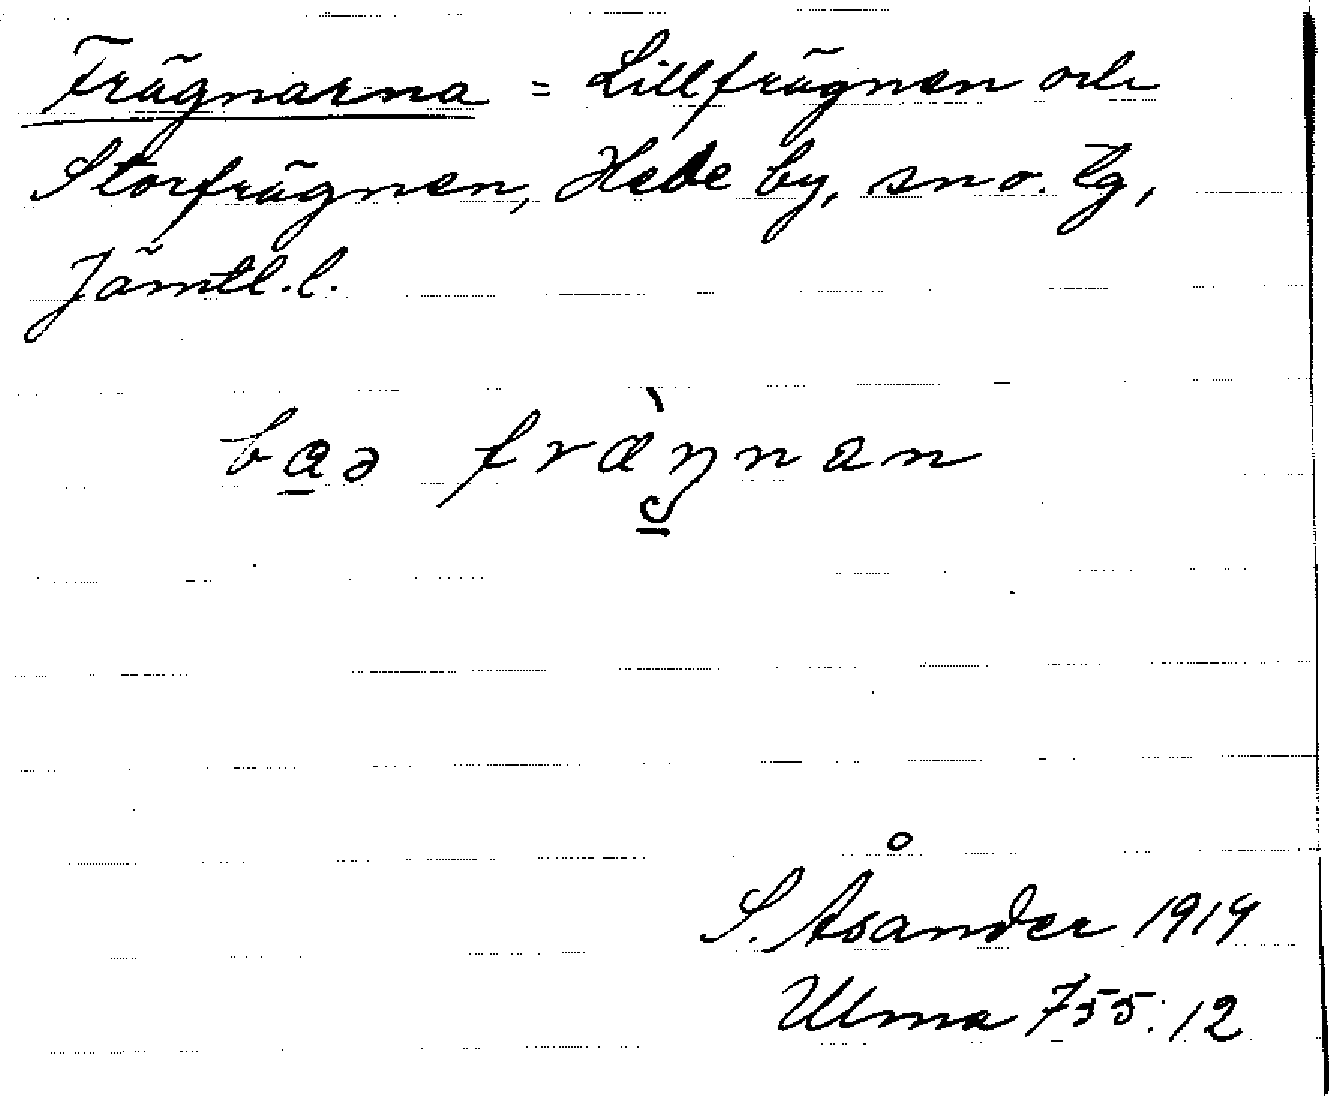 Frägnarna = Lillfrägnen och
Storfrägnen, Hede by, sn o. tg,
Jämtl. l.
baə fræ̀ŋnan
S. Åsander 1919
Ulma 755:12